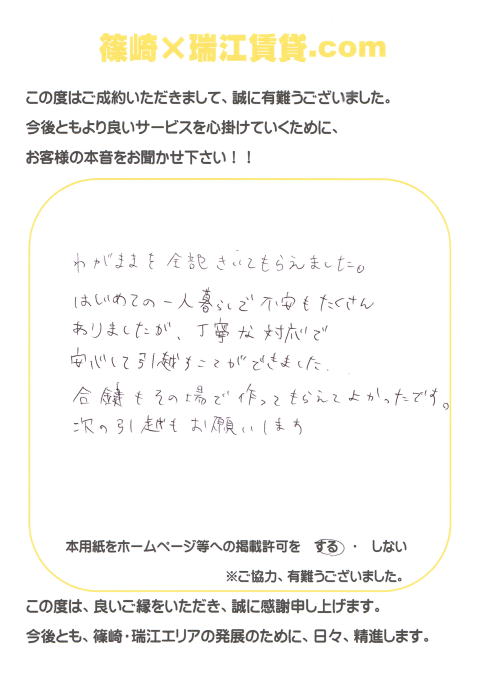 篠崎×瑞江賃貸.com
この度はご成約いただきまして、誠に有難うございました。
今後ともより良いサービスを心掛けていくために、
お客様の本音をお聞かせ下さい！！
わがままを全部きいてもらえました。
はじめての一人暮らしで不安もたくさん
ありましたが、丁寧な対応で
安心して引越すことができました。
合鍵もその場で作ってもらえてよかったです。
次の引越もお願いします
本用紙をホームページ等への掲載許可を する ・ しない
※ご協力、有難うございました。
この度は、良いご縁をいただき、誠に感謝申し上げます。
今後とも、篠崎・瑞江エリアの発展のために、日々、精進します。